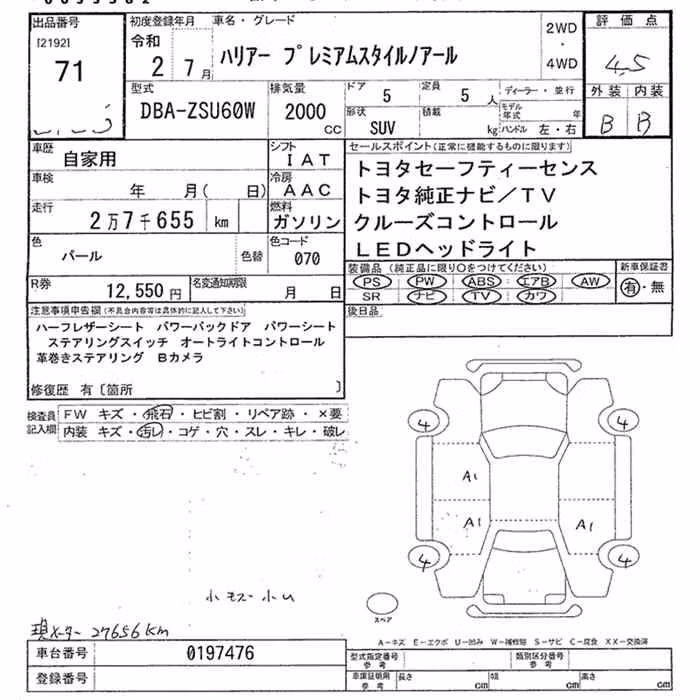 出品番号 初度登録年月 車名・グレード 2WD・4WD 評価点
[2192] 令和 ハリアー プレミアムスタイルノアール 4.5
71 2 7月
型式 排気量 ドア 定員 ディーラー・並行 外装 内装
DBA-ZSU60W 2000cc 5 5人 モデル年式 年 B B
形状 積載
SUV kg ハンドル 左・右
車歴 自家用 シフト IAT セールスポイント(正常に機能するものに限ります)
車検 年 月( 日) 冷房 AAC トヨタセーフティーセンス
トヨタ純正ナビ/TV
走行 2万7千655 km 燃料 ガソリン クルーズコントロール
LEDヘッドライト
色 パール 色替 色コード 070
装備品(純正品に限り○をつけてください) 新車保証書
PS PW ABS エアB AW 有・無
SR ナビ TV カワ
R券 12,550円 名変通知期限 月 日
後日品
注意事項申告欄(不具合内容等は具体的に記入して下さい)
ハーフレザーシート パワーバックドア パワーシート
ステアリングスイッチ オートライトコントロール
革巻きステアリング Bカメラ
修復歴 有〔箇所 〕
検査員記入欄
FW キズ・飛石・ヒビ割・リペア跡・×要
内装 キズ・汚レ・コゲ・穴・スレ・キレ・破レ
4 4
A1
A1 A1
4 4
スペア
小キズ小凹
現メーター 27656km
A-キズ E-エクボ U-凹み W-補修跡 S-サビ C-腐食 XX-交換済
車台番号 0197476 型式指定番号 参考 類別区分番号 参考
登録番号 車庫証明用 参考 長さ cm 幅 cm 高さ cm